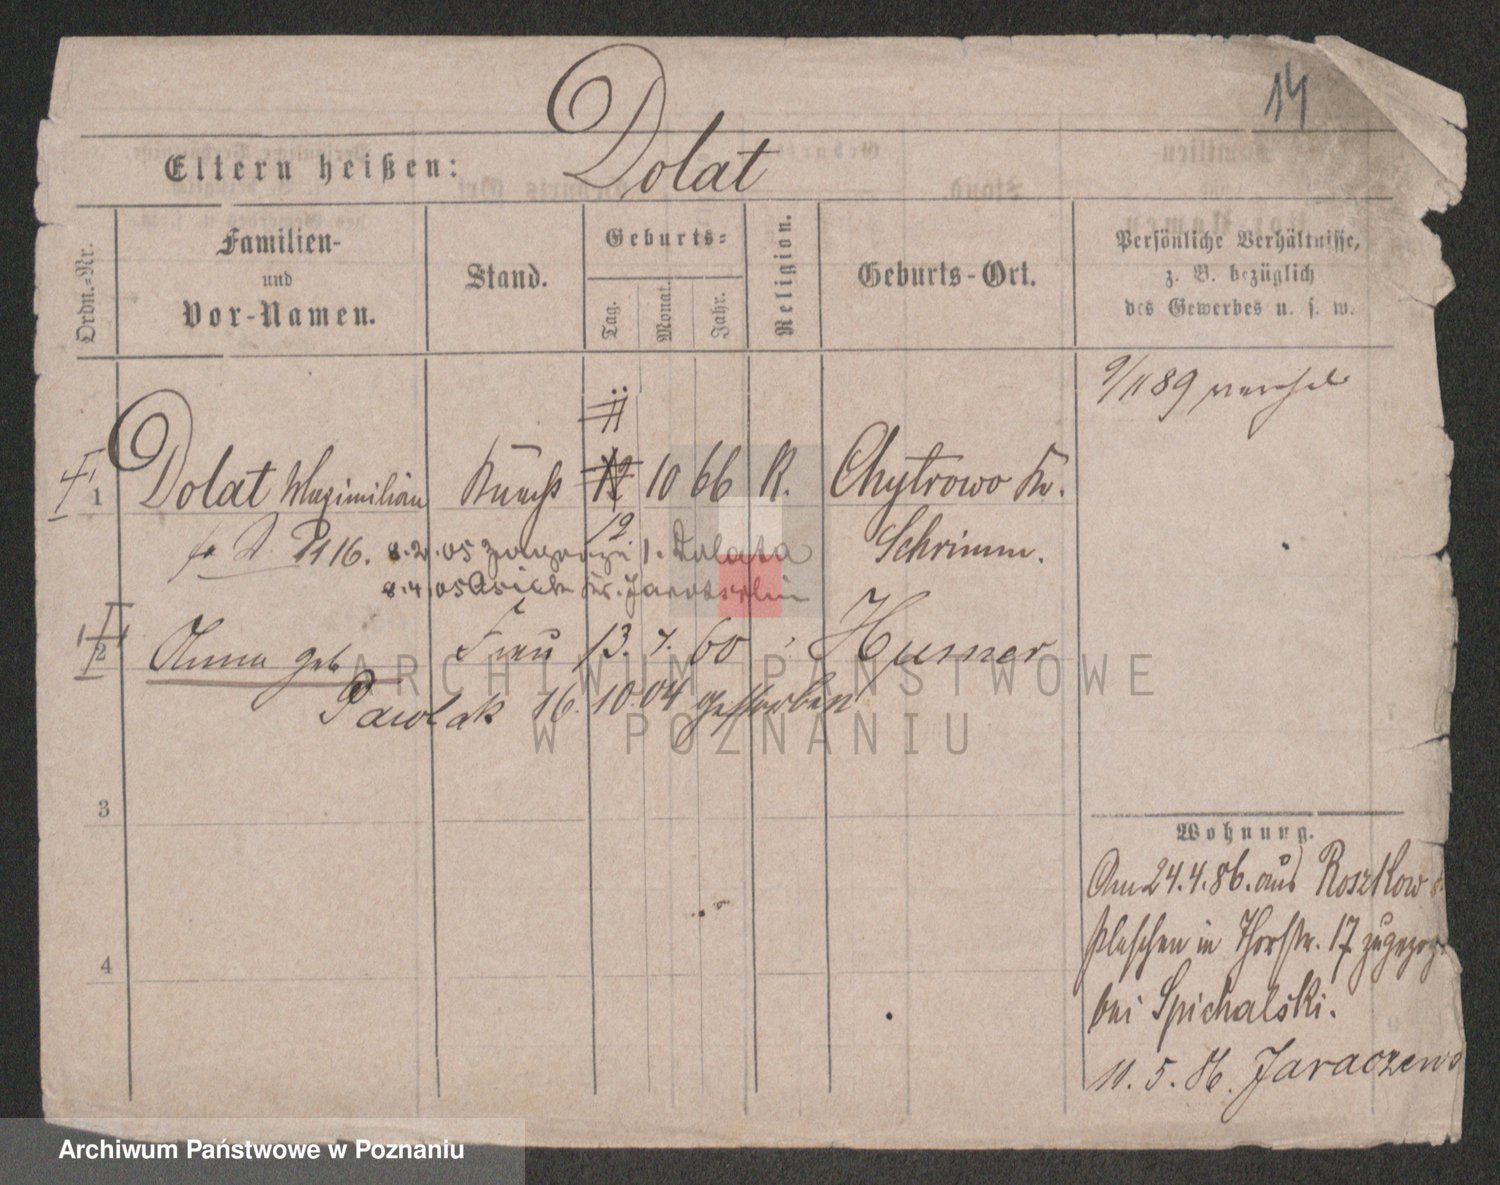 14
Eltern heißen: Dolat
Ordn.-Nr.
Familien-
und
Vor-Namen.
Stand.
Geburts-
Tag.
Monat.
Jahr.
Religion.
Geburts-Ort.
Persönliche Verhältnisse,
z. B. bezüglich
des Gewerbes u. s. w.
9/11 89
I
1 Dolat Maximilian Knecht 12 10 66 K. Chytrowo Kr.
12
8.2.05 1. Dolata Schrimm.
8.4.05 Kr. Jarotschin
II
2 Anna geb Frau 13. 7. 60
Pawlak 16. 10. 04 gestorben
ARCHIWUM PAŃSTWOWE
W POZNANIU
3
4
Wohnung.
Am 24.4.86. aus Roszkow
Pleschen in Thorstr. 17
bei Spichalski.
11. 5. 86. Jaraczewo
Archiwum Państwowe w Poznaniu